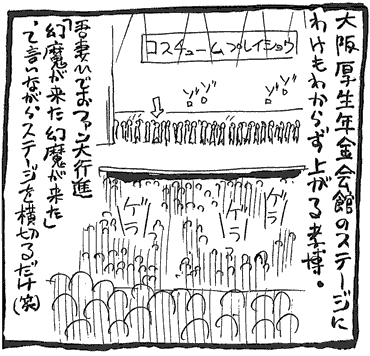 大阪厚生年金会館のステージに
わけもわからず上がる孝博。
コスチュームプレイショウ
ゾゾ
ゾゾ
ゲラ
ゲラ
ゲラ
吾妻ひでおファン大行進
「幻魔が来た 幻魔が来た」
と言いながらステージを横切るだけ(笑)